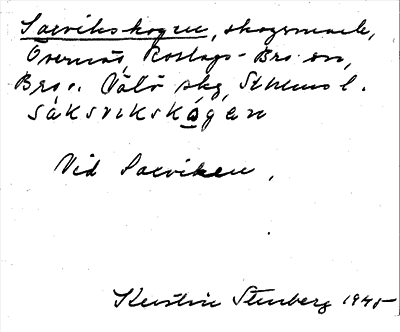 Saxvikskogen, skogsmark,
Övernäs, Roslags-Bro sn,
Bro o. Vätö skg, Sthlms l.
sáksvikskågen
Vid Saxviken.
Kerstin Stenberg 1945